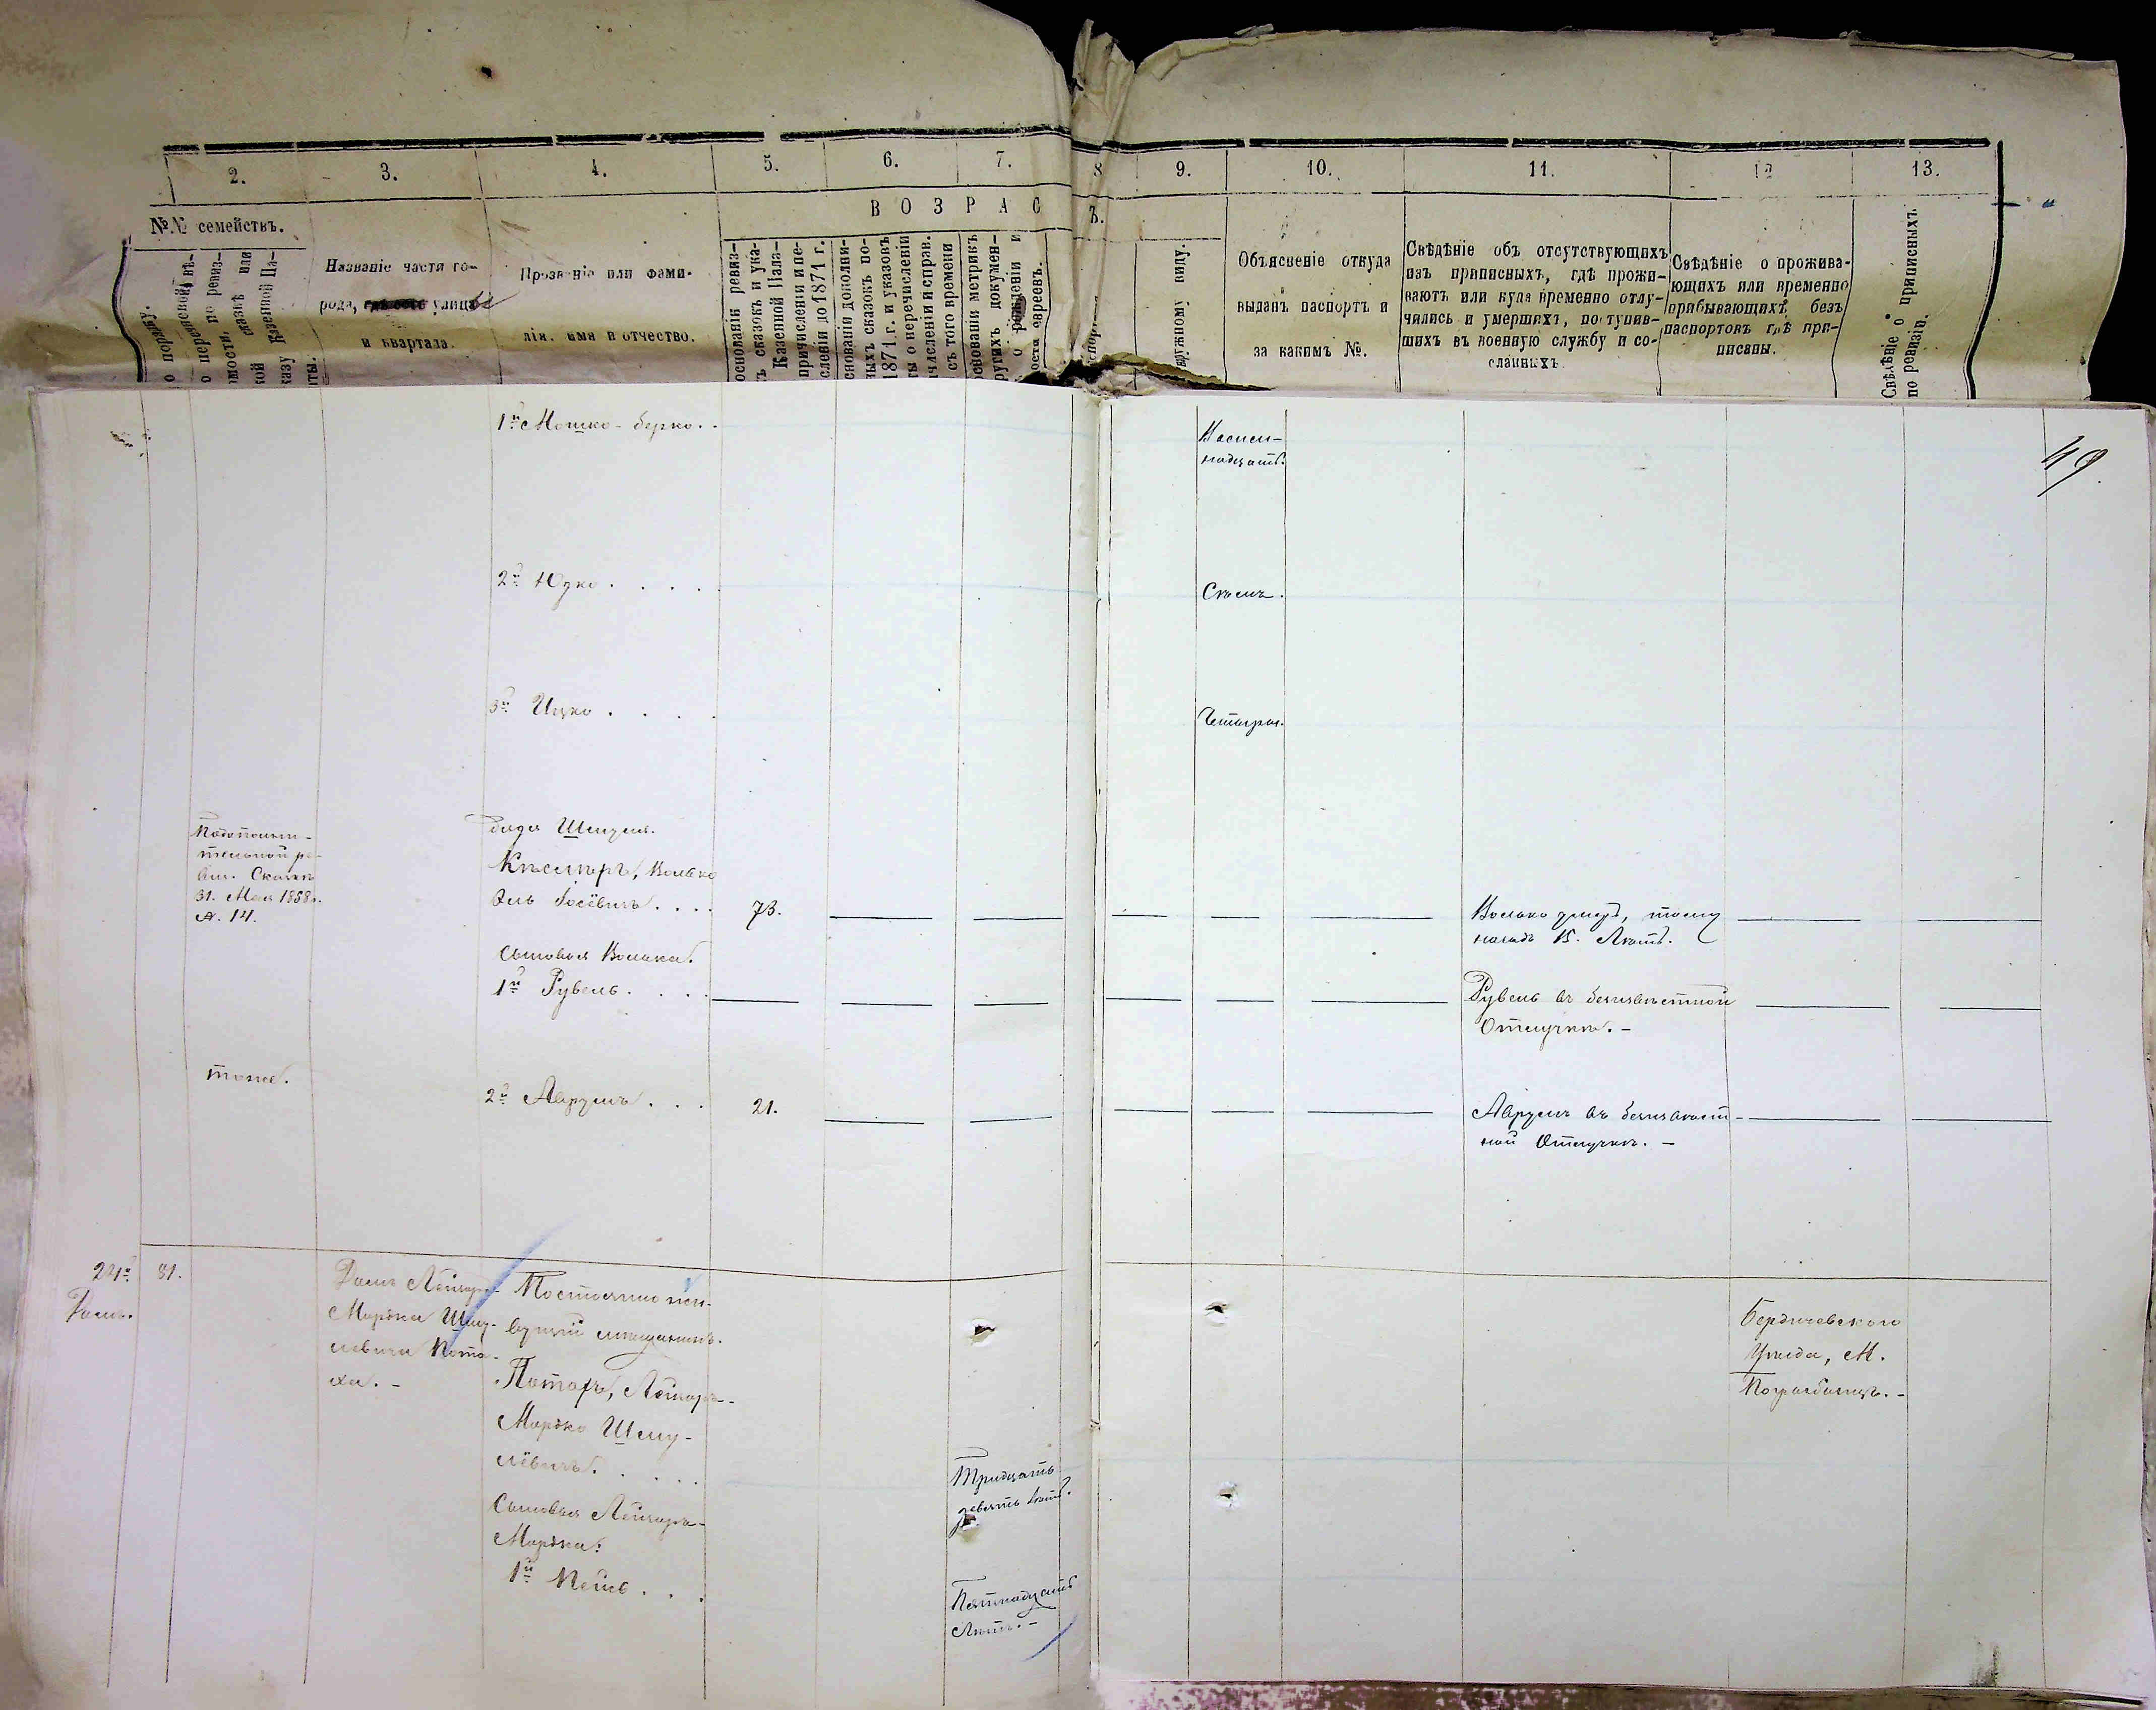 2. 3. 4. 5. 6. 7. 8 9. 10. 11. 12 13.
№№ семействъ.
В О З Р А С Ъ.
Названіе части го-
рода, улицы
и квартала.
Прозваніе или фами-
лія, имя и отчество.
Объясненіе откуда
выданъ паспортъ и
за какимъ №.
Свѣдѣніе объ отсутствующихъ
изъ приписныхъ, гдѣ прожи-
ваютъ или куда временно отлу-
чились и умершихъ, поступив-
шихъ въ военную службу и со-
сланныхъ.
Свѣдѣніе о прожива-
ющихъ или временно
прибывающихъ, безъ
паспортовъ гдѣ при-
писаны.
Свѣдѣніе о приписныхъ
по ревизіи.
49.
1й Мошко-Берко. -
Восем-
надцать.
2й Юдко . . . .
Семь.
3й Ицко . . . .
Четыре.
31. Мая 1858г.
№. 14.
дядя Шмуля.
Волько
Іосёвичъ . . . . 73.
Волько умеръ, тому
назадъ 15. Лѣтъ.
Сыновья Волька.
1й Рувель. . . .
Рувель въ безизвѣстной
Отлучкѣ. -
тоже.
2й Аврумъ . . . 21.
Аврумъ въ безизвѣст-
ной Отлучкѣ. -
24й 81.
Домъ.
Домъ Лейзора-
Мордка Шму-
левича
Постоянно жи-
вущій мѣщанинъ.
Лейзоръ-
Мордко Шму-
лёвичъ. . . . .
Тридцать
девять лѣтъ.
Бердичевскаго
Уѣзда, М.
Погребищъ. -
Сыновья Лейзора-
Мордка:
1й Пейсе . . .
Пятнадцать
Лѣтъ. -